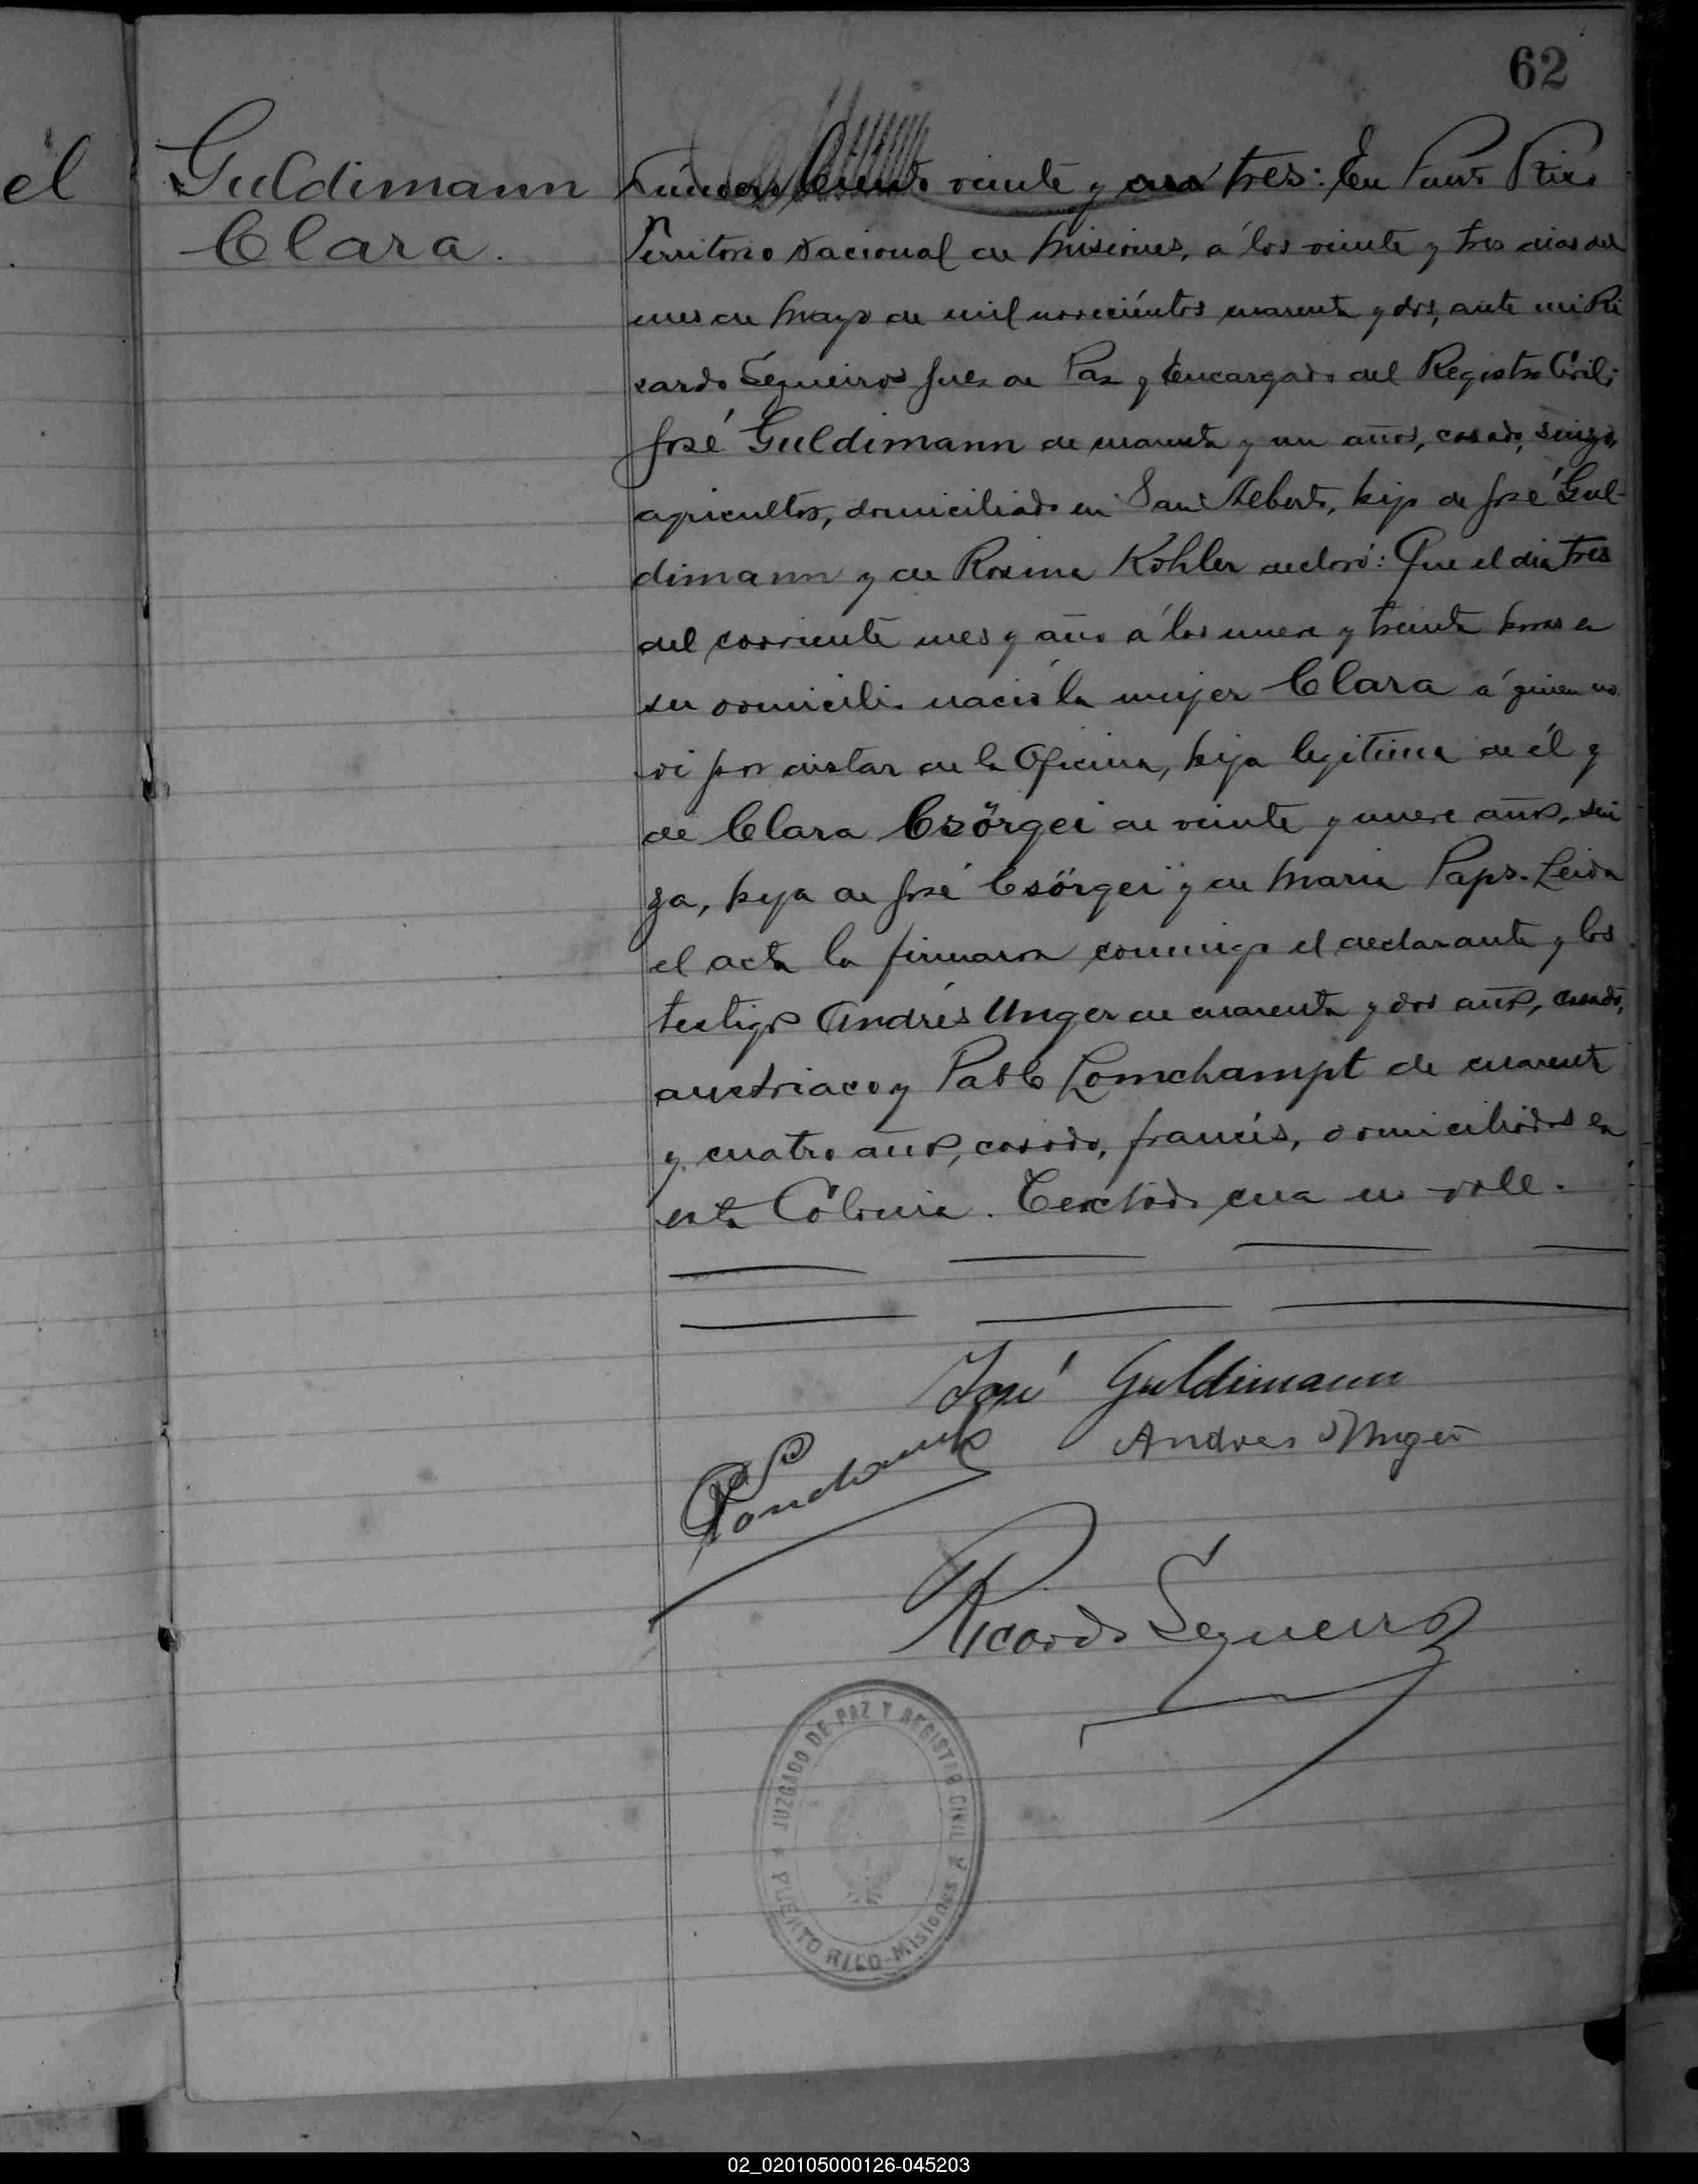 62
él
Guldimann
Clara.
Número Ciento veinte y tres: En Puerto Rico
Territorio Nacional de Misiones, á los veinte y tres dias del
mes de Mayo de mil novecientos cuarenta y dos, ante mi Ri
cardo Sequeiros Juez de Paz y Encargado del Registro Civil;
José Guldimann de cuarenta y un años, casado, suizo,
agricultor, domiciliado en San Alberto, hijo de José Gul-
dimann y de Rosina Kohler declaró: Que el dia tres
del corriente mes y año á las nueve y treinta horas en
su domicilio nació la mujer Clara á quien no
vi por distar de la Oficina, hija legitima de él y
de Clara Csörgei de veinte y nueve años, sui
za, hija de José Csörgei y de Maria Paps. Leida
el acta la firmaron conmigo el declarante y los
testigos Andrés Unger de cuarenta y dos años, casado,
austriaco y Pablo Lomchampt de cuarenta
y cuatro años, casado, francés, domiciliados en
esta Colonia. Textado una no vale.
José Guldimann
Andres Unger
Ricardo Sequeiros
JUZGADO DE PAZ Y REGISTRO CIVIL
PUERTO RICO-Misiones
02_020105000126-045203